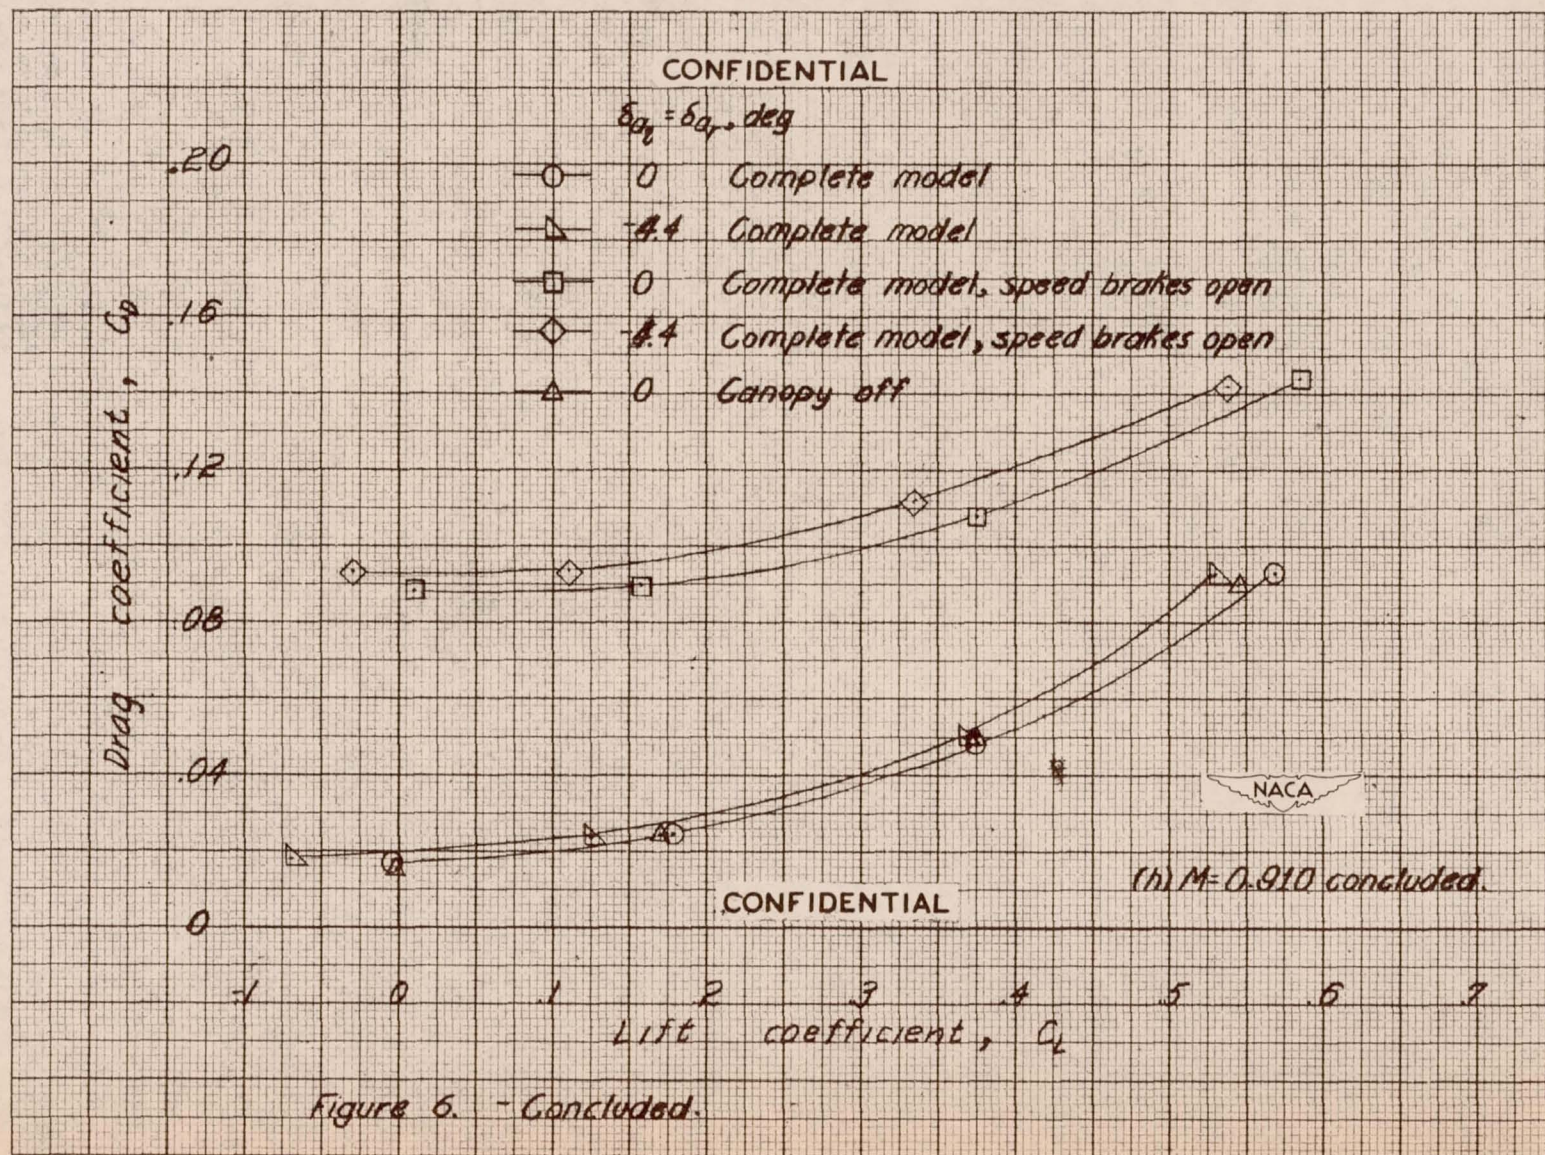 CONFIDENTIAL
δaℓ = δar, deg
0 Complete model
-4.4 Complete model
0 Complete model, speed brakes open
-4.4 Complete model, speed brakes open
0 Canopy off
.20
.16
.12
.08
.04
0
Drag coefficient, CD
NACA
(h) M=0.910 concluded.
CONFIDENTIAL
-.1 0 .1 .2 .3 .4 .5 .6 .7
Lift coefficient, CL
Figure 6. - Concluded.